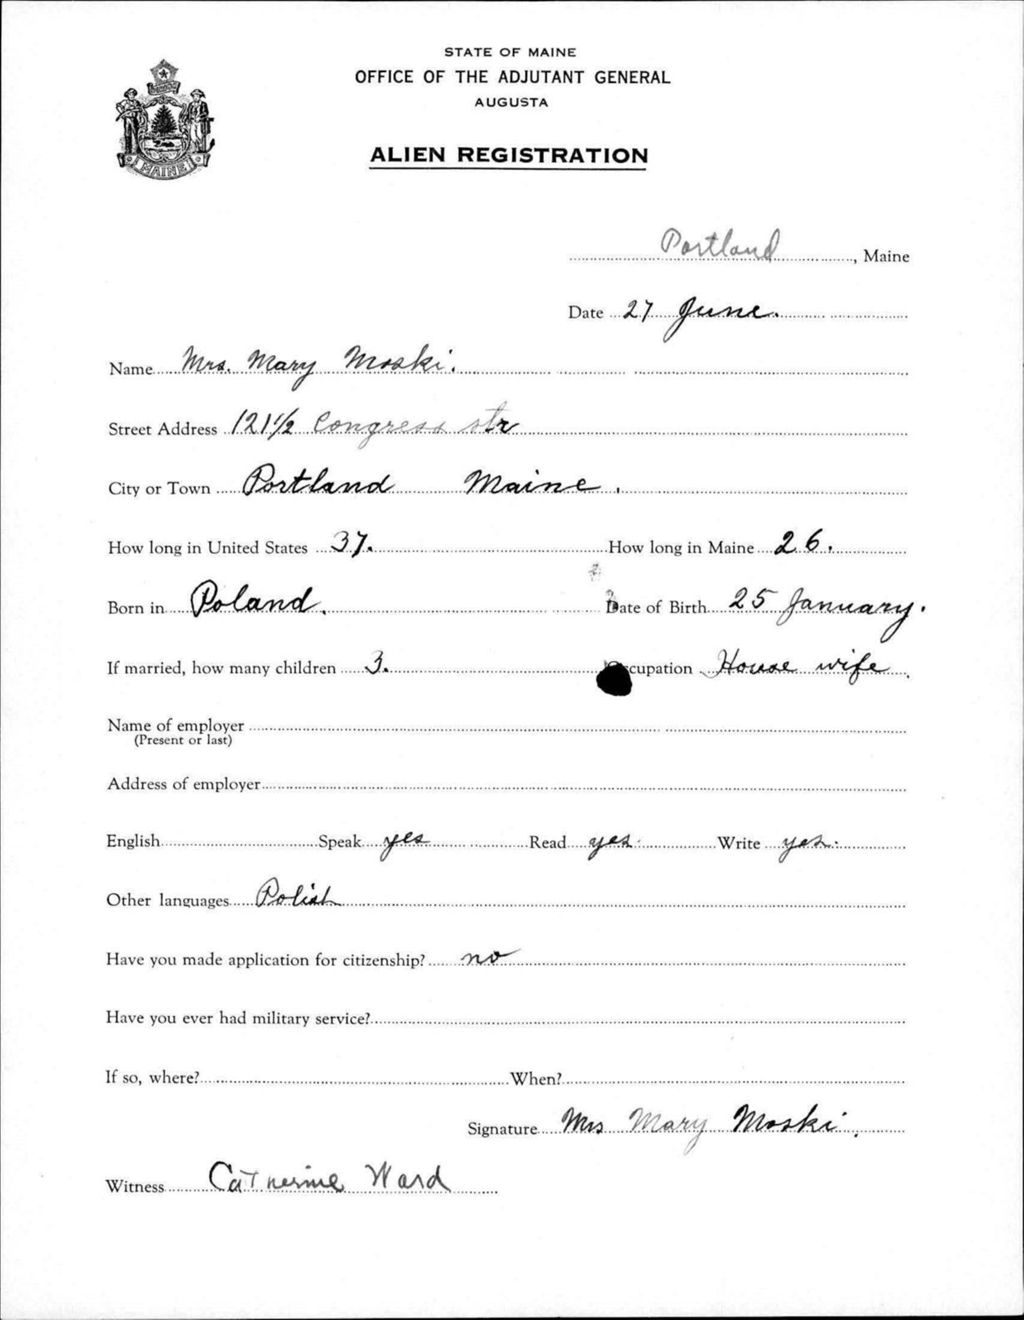 STATE OF MAINE
OFFICE OF THE ADJUTANT GENERAL
AUGUSTA
ALIEN REGISTRATION
MAINE
Portland, Maine
Date 27 June.
Name Mrs. Mary Moski.
Street Address 121 1/2 Congress str
City or Town Portland Maine.
How long in United States 37. How long in Maine 26.
Born in Poland. Date of Birth 25 January.
If married, how many children 3. Occupation House wife.
Name of employer
(Present or last)
Address of employer
English Speak yes Read yes. Write yes.
Other languages Polish
Have you made application for citizenship? no
Have you ever had military service?
If so, where? When?
Signature Mrs Mary Moski.
Witness Catherine Ward